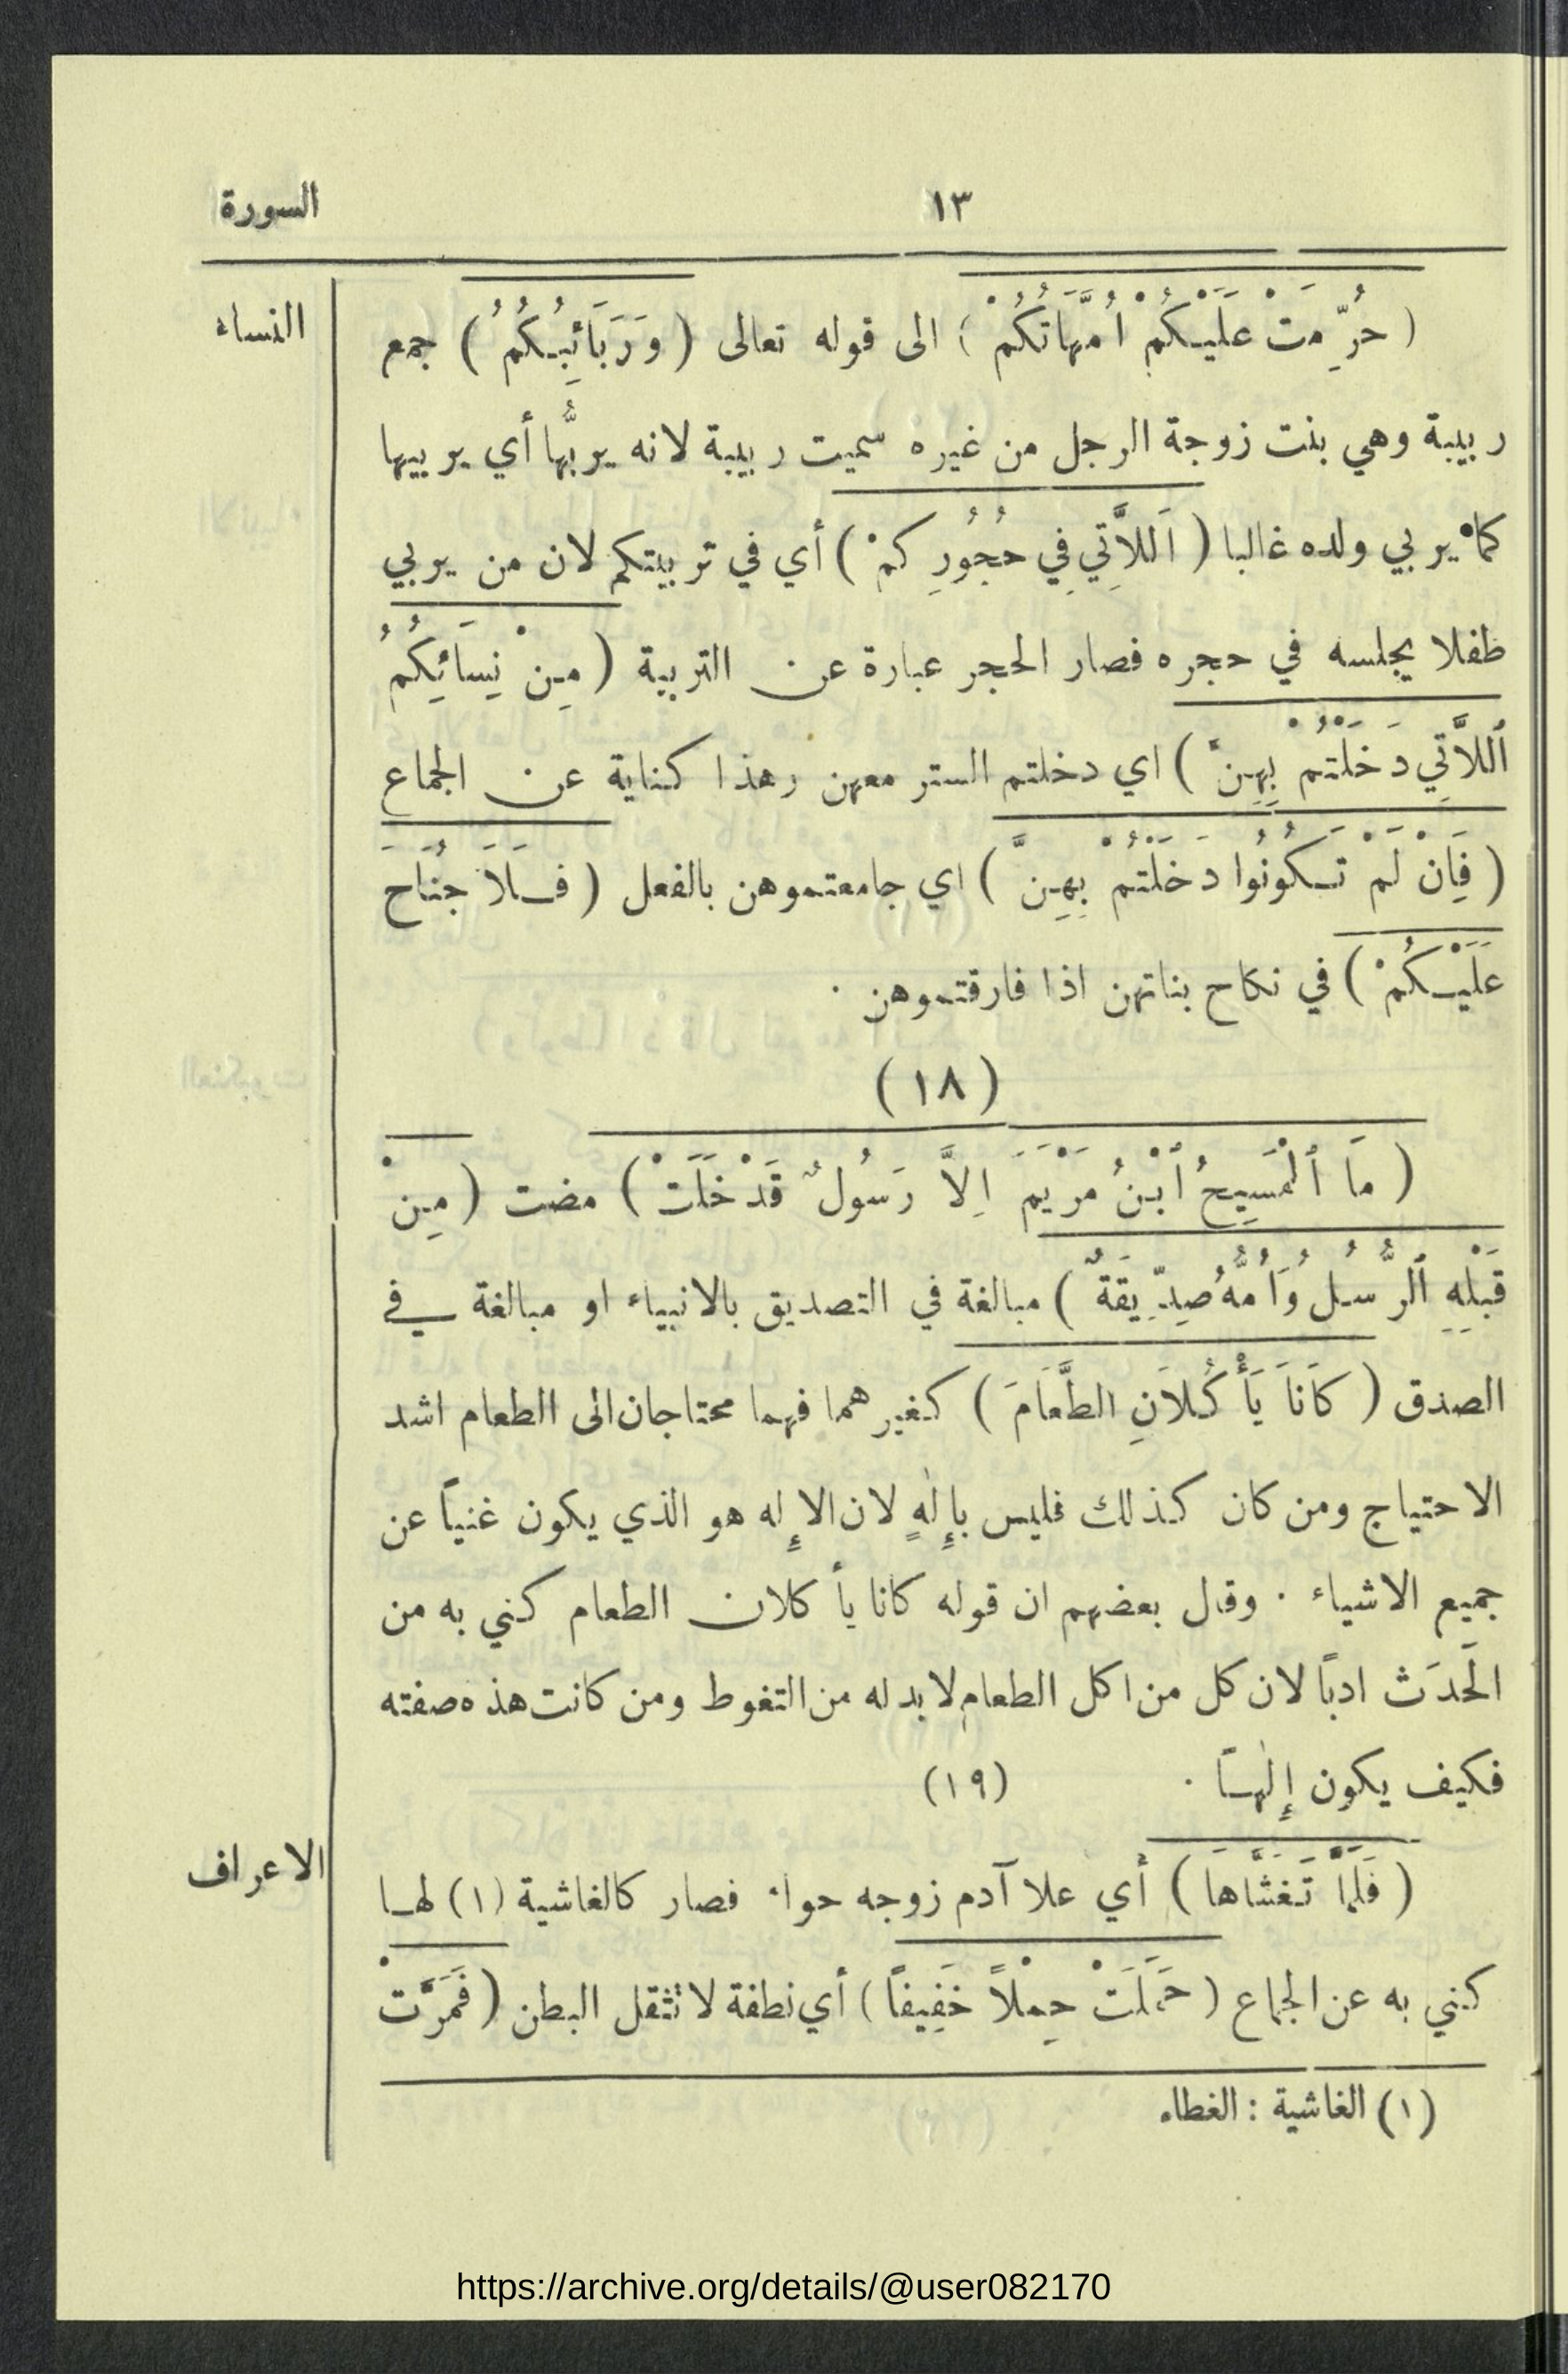 ١٣ السورة
النساء
( حُرِّمَتْ عَلَيْكُمْ اُمَّهَاتُكُمْ ) الى قوله تعالى ( وَرَبَائِبُكُمُ ) جمع
ربيبة وهي بنت زوجة الرجل من غيره سميت ربيبة لانه يربُّها أي يربيها
كما يربي ولده غالبا ( اَللاَّتِي فِي حُجُورِكُمْ ) أي في تربيتكم لان من يربي
طفلا يجلسه في حجره فصار الحجر عبارة عن التربية ( مِنْ نِسَائِكُمُ
ٱللاَّتِي دَخَلْتُمْ بِهِنَّ ) اي دخلتم الستر معهن وهذا كناية عن الجماع
( فَاِنْ لَمْ تَكُونُوا دَخَلْتُمْ بِهِنَّ ) اي جامعتموهن بالفعل ( فَلاَ جُنَاحَ
عَلَيْكُمْ ) في نكاح بناتهن اذا فارقتموهن .
( ١٨ )
( مَا ٱلْمَسِيحُ ٱبْنُ مَرْيَمَ اِلاَّ رَسُولٌ قَدْ خَلَتْ ) مضت ( مِنْ
قَبْلِهِ ٱلرُّسُلُ وَاُمُّهُ صِدِّيقَةٌ ) مبالغة في التصديق بالانبياء او مبالغة في
الصدق ( كَانَا يَأْكُلاَنِ الطَّعَامَ ) كغيرهما فهما محتاجان الى الطعام اشد
الاحتياج ومن كان كذلك فليس بإِلٰهٍ لان الإِله هو الذي يكون غنياً عن
جميع الاشياء . وقال بعضهم ان قوله كانا يأكلان الطعام كني به من
الحَدَث ادباً لان كل من اكل الطعام لا بد له من التغوط ومن كانت هذه صفته
فكيف يكون إِلٰهاً . (١٩)
الاعراف
( فَلَمَّا تَغَشَّاهَا ) أي علا آدم زوجه حواء فصار كالغاشية (١) لها
كني به عن الجماع ( حَمَلَتْ حِمْلاً خَفِيفاً ) أي نطفة لا تثقل البطن ( فَمَرَّتْ
(١) الغاشية : الغطاء
https://archive.org/details/@user082170